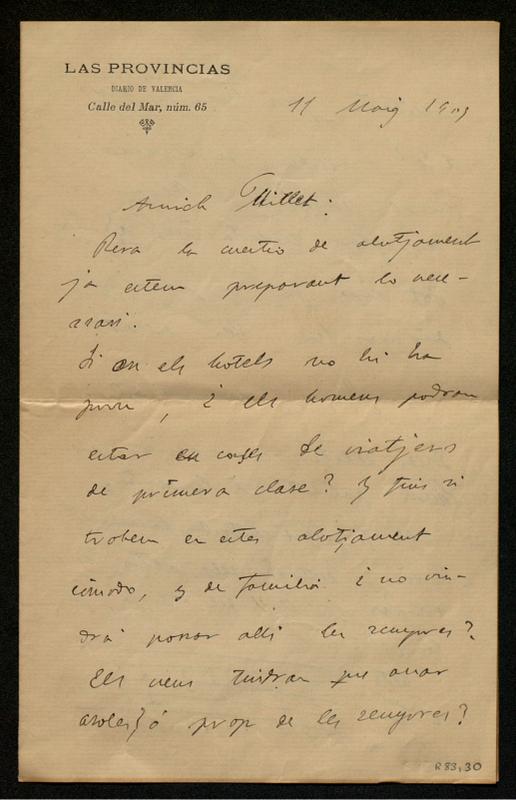 LAS PROVINCIAS
DIARIO DE VALENCIA
Calle del Mar, núm. 65
11 Maig 1909
Amich Millet:
Pera la cuestio de alotjament
ja estem preparant lo nece-
ssari.
Si en els hotels no hi ha
prou, ¿els homens podran
estar en cases de viatjers
de primera clase? Y fins si
trobem en estes alotjament
cómodo, y de familia ¿no vin-
drá posar allí les senyores?
Els nens tindran que anar
asoles? ó prop de les senyores?
R 83,30